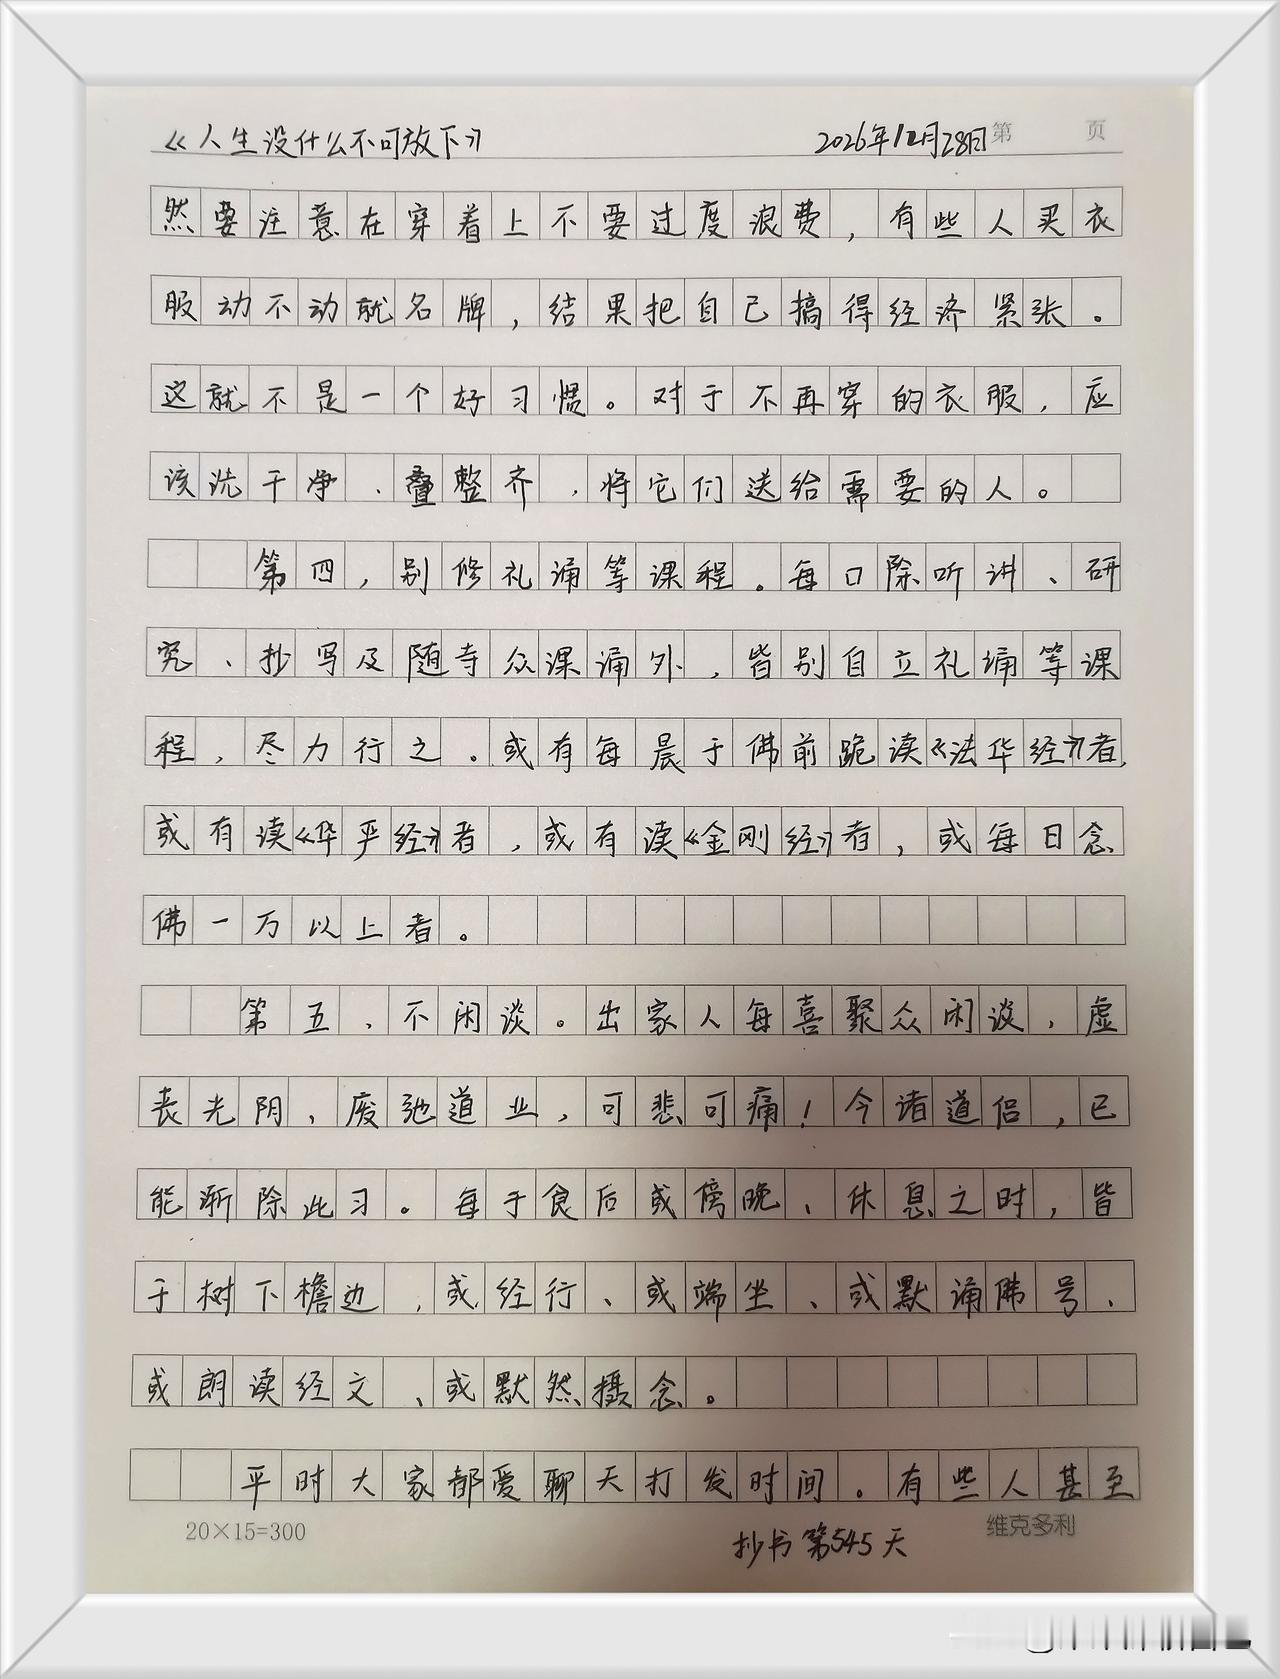 《人生没什么不可放下》 2026年12月28日第 页
然要注意在穿着上不要过度浪费，有些人买衣
服动不动就名牌，结果把自己搞得经济紧张。
这就不是一个好习惯。对于不再穿的衣服，应
该洗干净、叠整齐，将它们送给需要的人。
第四，别修礼诵等课程。每日除听讲、研
究、抄写及随寺众课诵外，皆别自立礼诵等课
程，尽力行之。或有每晨于佛前跪读《法华经》者，
或有读《华严经》者，或有读《金刚经》者，或每日念
佛一万以上者。
第五，不闲谈。出家人每喜聚众闲谈，虚
丧光阴，废弛道业，可悲可痛！今诸道侣，已
能渐除此习。每于食后或傍晚、休息之时，皆
于树下檐边，或经行、或端坐、或默诵佛号、
或朗读经文、或默然摄念。
平时大家都爱聊天打发时间。有些人甚至
20×15=300 抄书第545天 维克多利